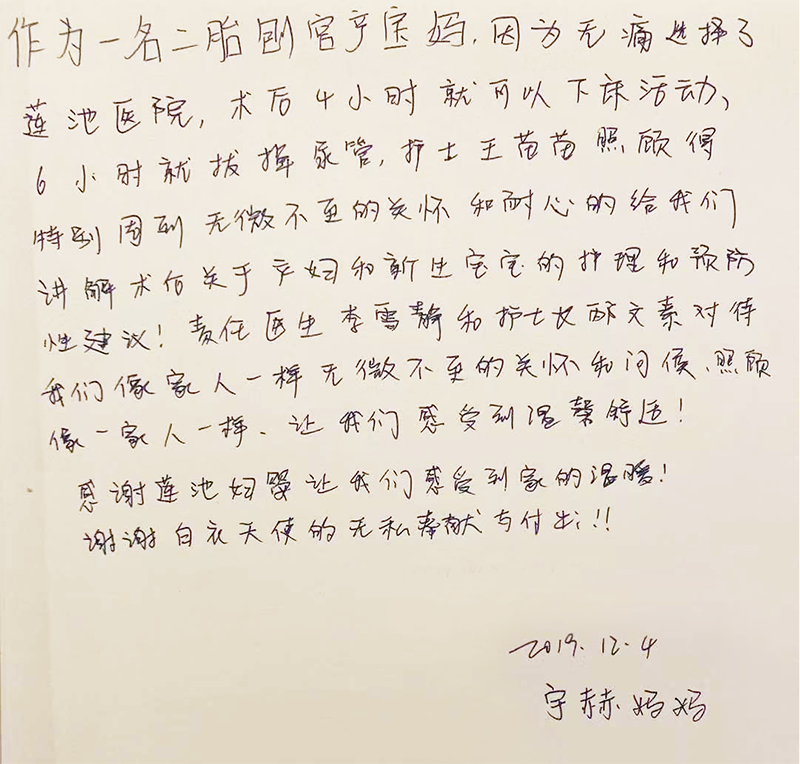 作为一名二胎刨宫产宝妈，因为无痛选择了
莲池医院，术后4小时就可以下床活动、
6小时就拔掉尿管，护士王苗苗照顾得
特别周到 无微不至的关怀和耐心的给我们
讲解术后关于产妇和新生宝宝的护理和预防
性建议！责任医生李雪静和护士长 文素对待
我们像家人一样无微不至的关怀和问候、照顾
像一家人一样、让我们感受到温馨舒适！
感谢莲池妇婴让我们感受到家的温暖！
谢谢白衣天使的无私奉献与付出！！！
2019.12.4
宇赫妈妈